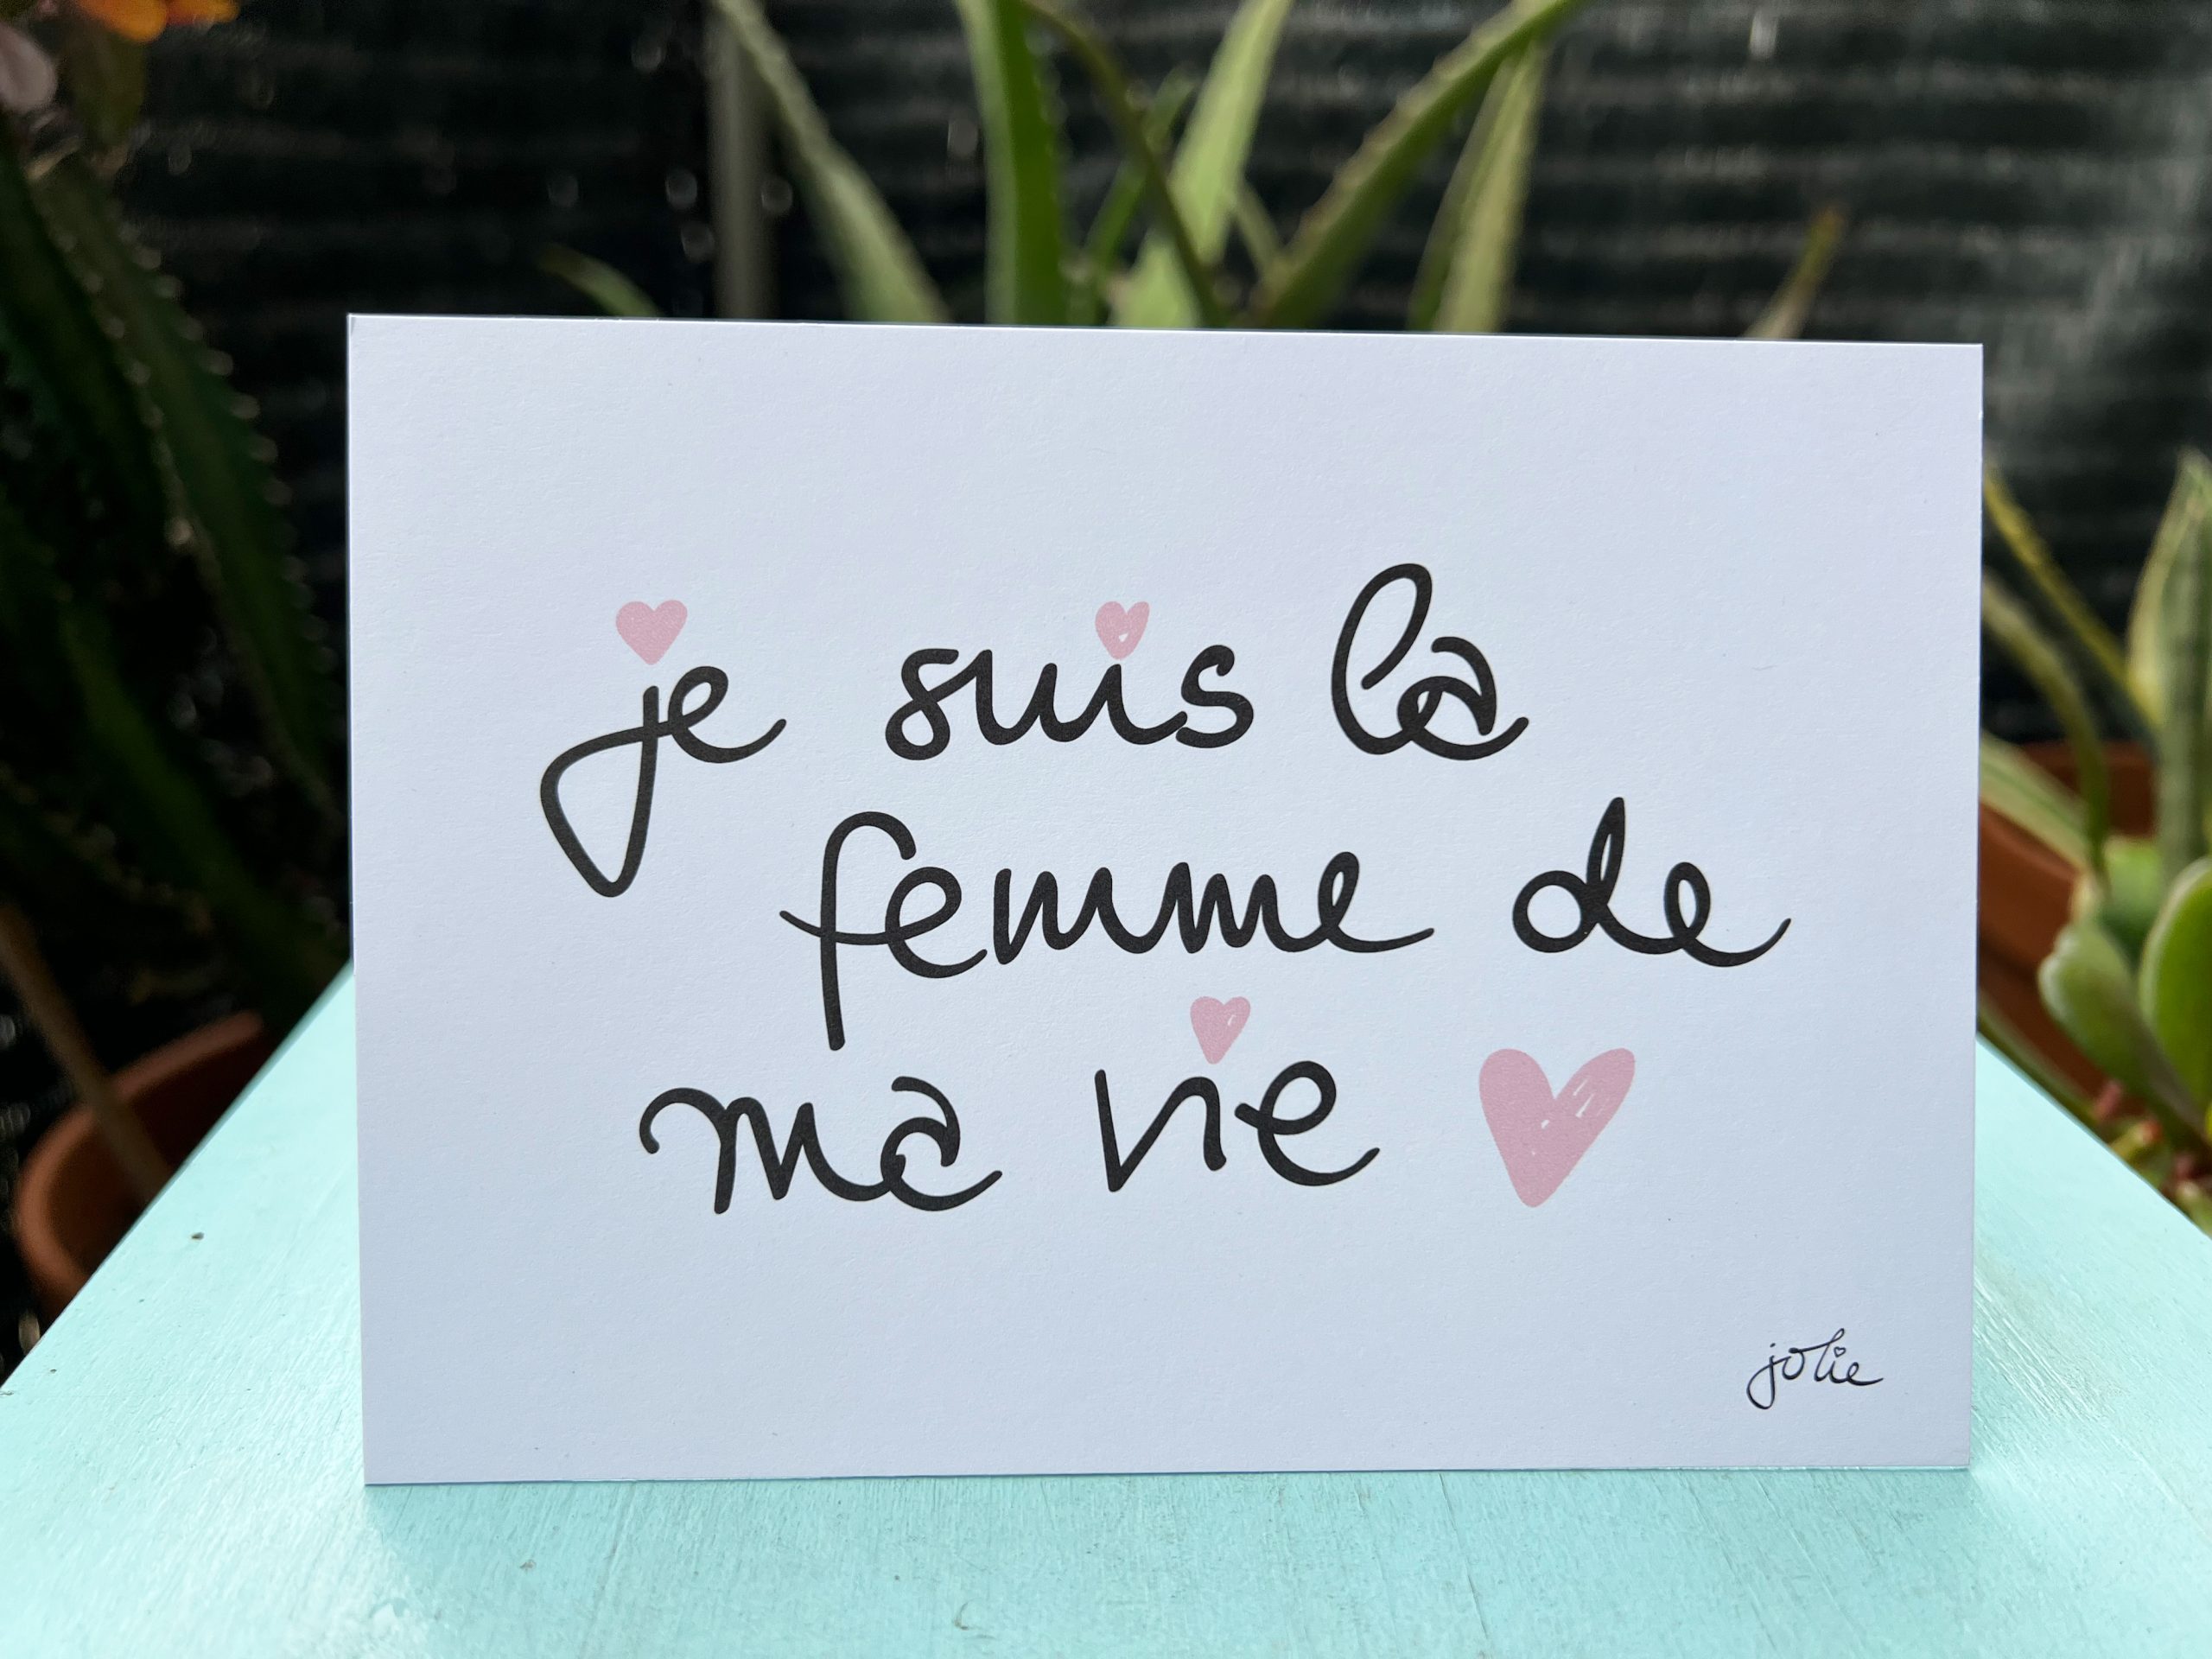 je suis la
femme de
ma vie
jolie